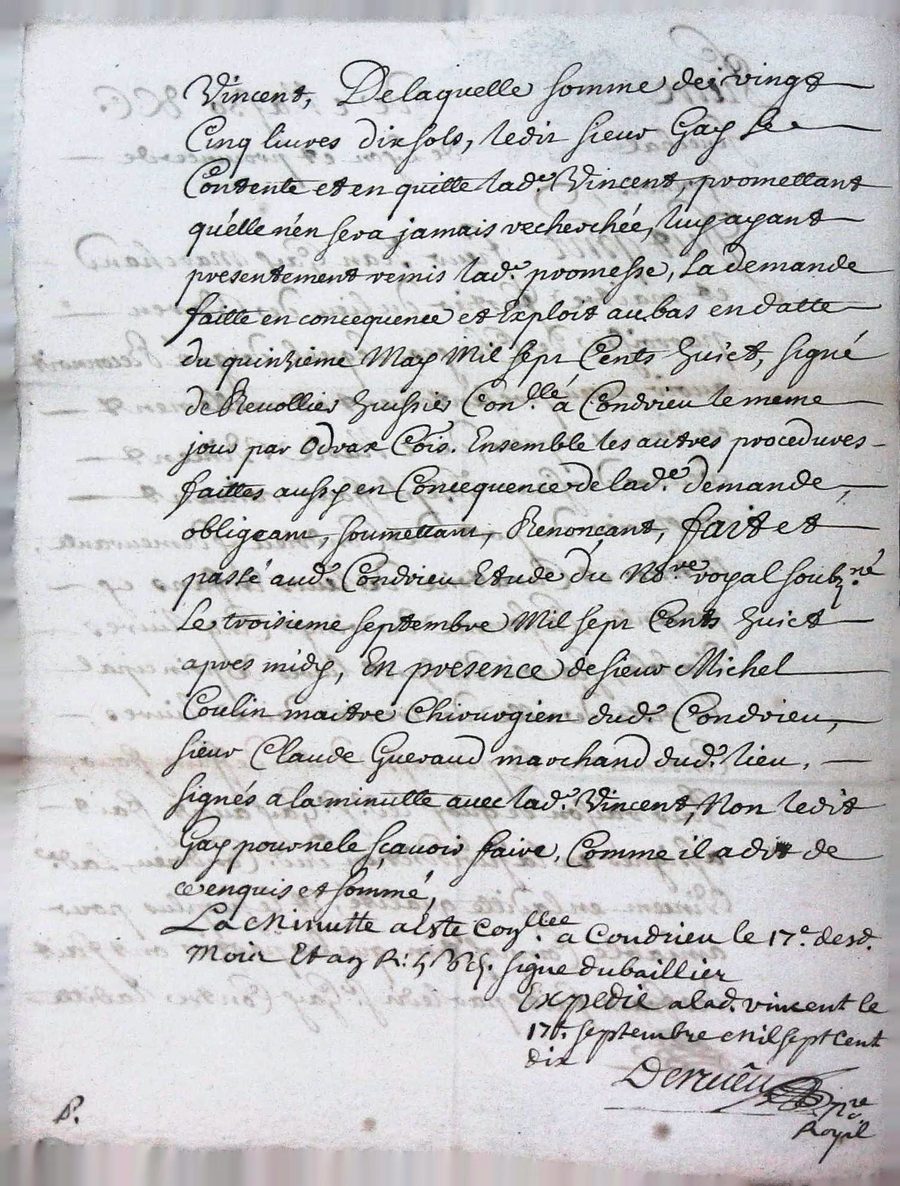 Vincent, De laquelle somme de vingt
Cinq livres dix sols, ledit sieur Gay se
Contente et en quitte lad.e Vincent, promettant
qu'elle n'en sera jamais recherchée, luy ayant
presentement remis lad.e promesse, La demande
faitte en concequence et Exploit au bas en datte
du quinzieme May Mil sept Cents huict, signé
de Revollier huissier Con.llé a Condrieu le meme
jour par Odrax Cois. Ensemble les autres procedures
faittes aussy en Concequence de lad.e demande,
obligeant, soumettant, Renonçant, fait et
passé aud. Condrieu Etude du No.re royal soubz.né
Le troisieme septembre Mil sept Cents huict
apres midy, En presence de sieur Michel
Coulin maitre Chirurgien dud. Condrieu,
sieur Claude Gueraud marchand dud. lieu,
signés a la minutte avec lad.e Vincent, Non ledit
Gay pour ne le sçavoir faire, Comme il a dit de
ce enquis et sommé,
La Minutte a Esté Con.llee a Condrieu le 17.e desd.
Mois Et an signé dubaillier
Expedié a lad. vincent le
17.e septembre Mil sept Cent
dix
n.re
Royal
P.